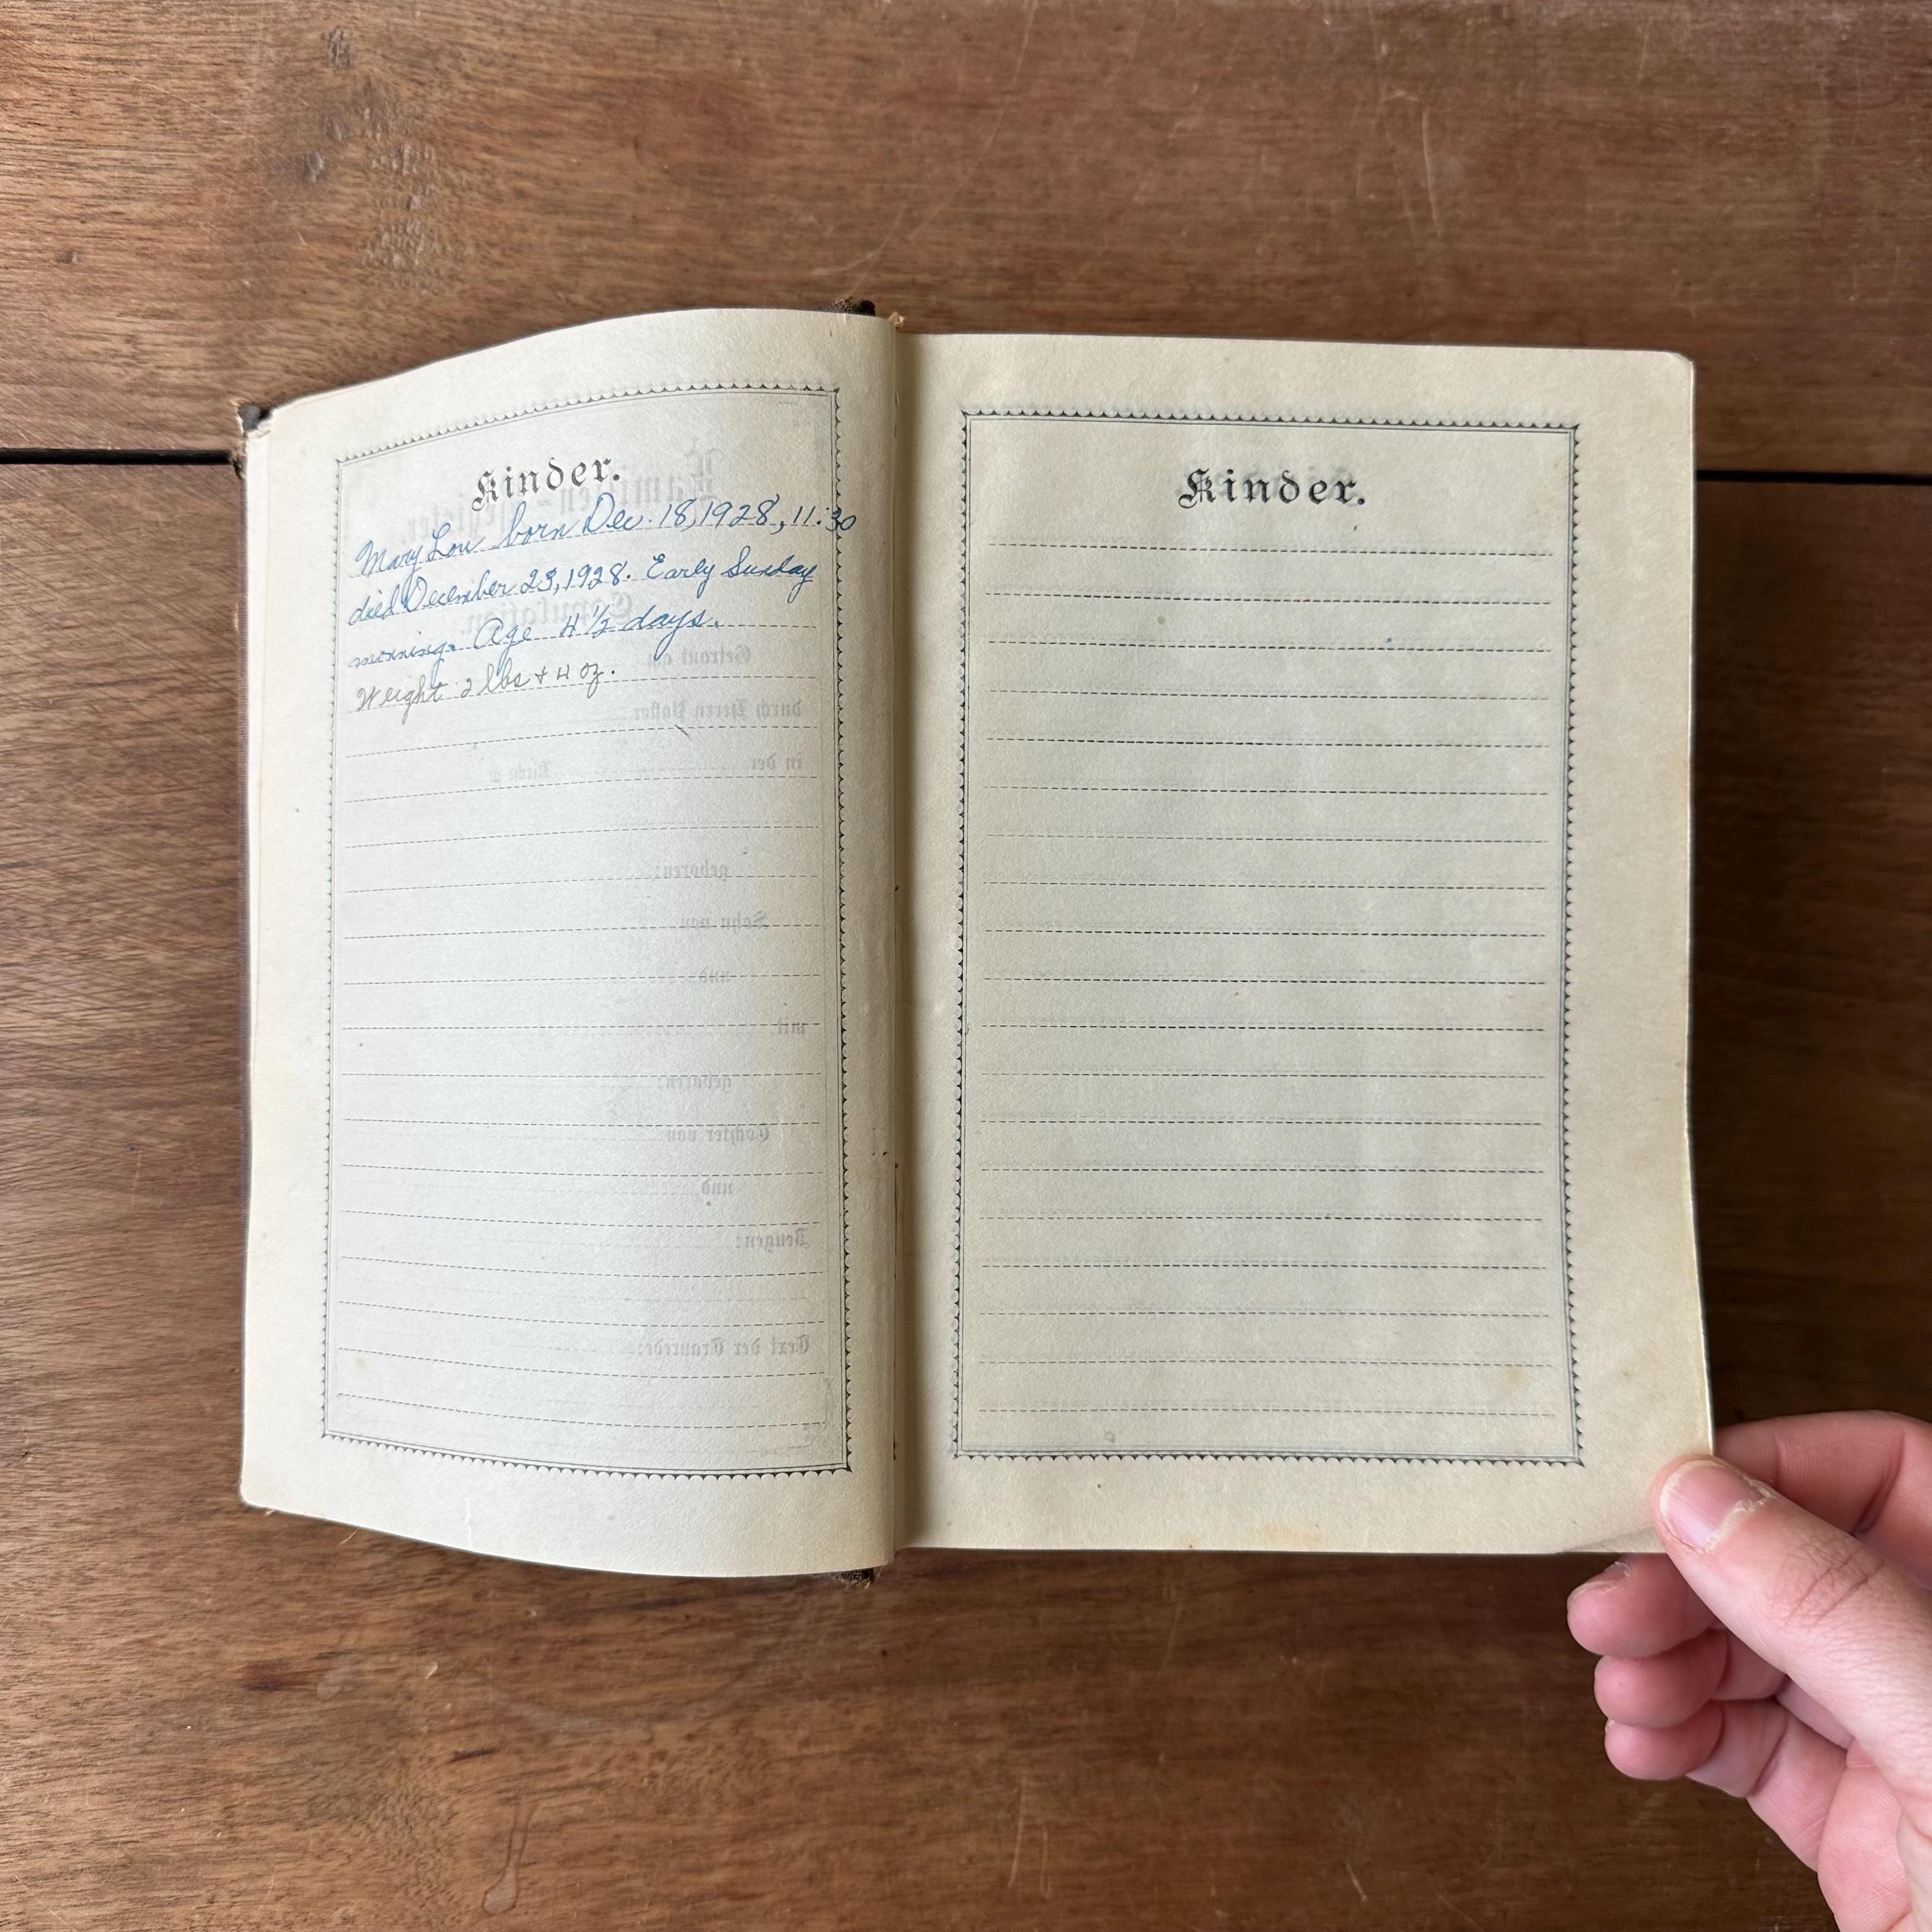 Kinder.
Mary Lou born Dec. 18, 1928, 11:30
died December 23, 1928. Early Sunday
morning. Age 4 ½ days.
Weight 2 lbs + 4 oz.
Kinder.